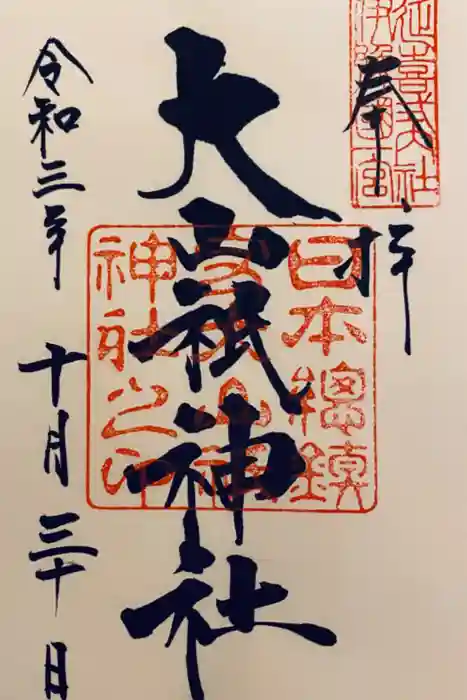 奉拝
日本總鎮
大山祇神社
神社之印
令和三年十月三十日